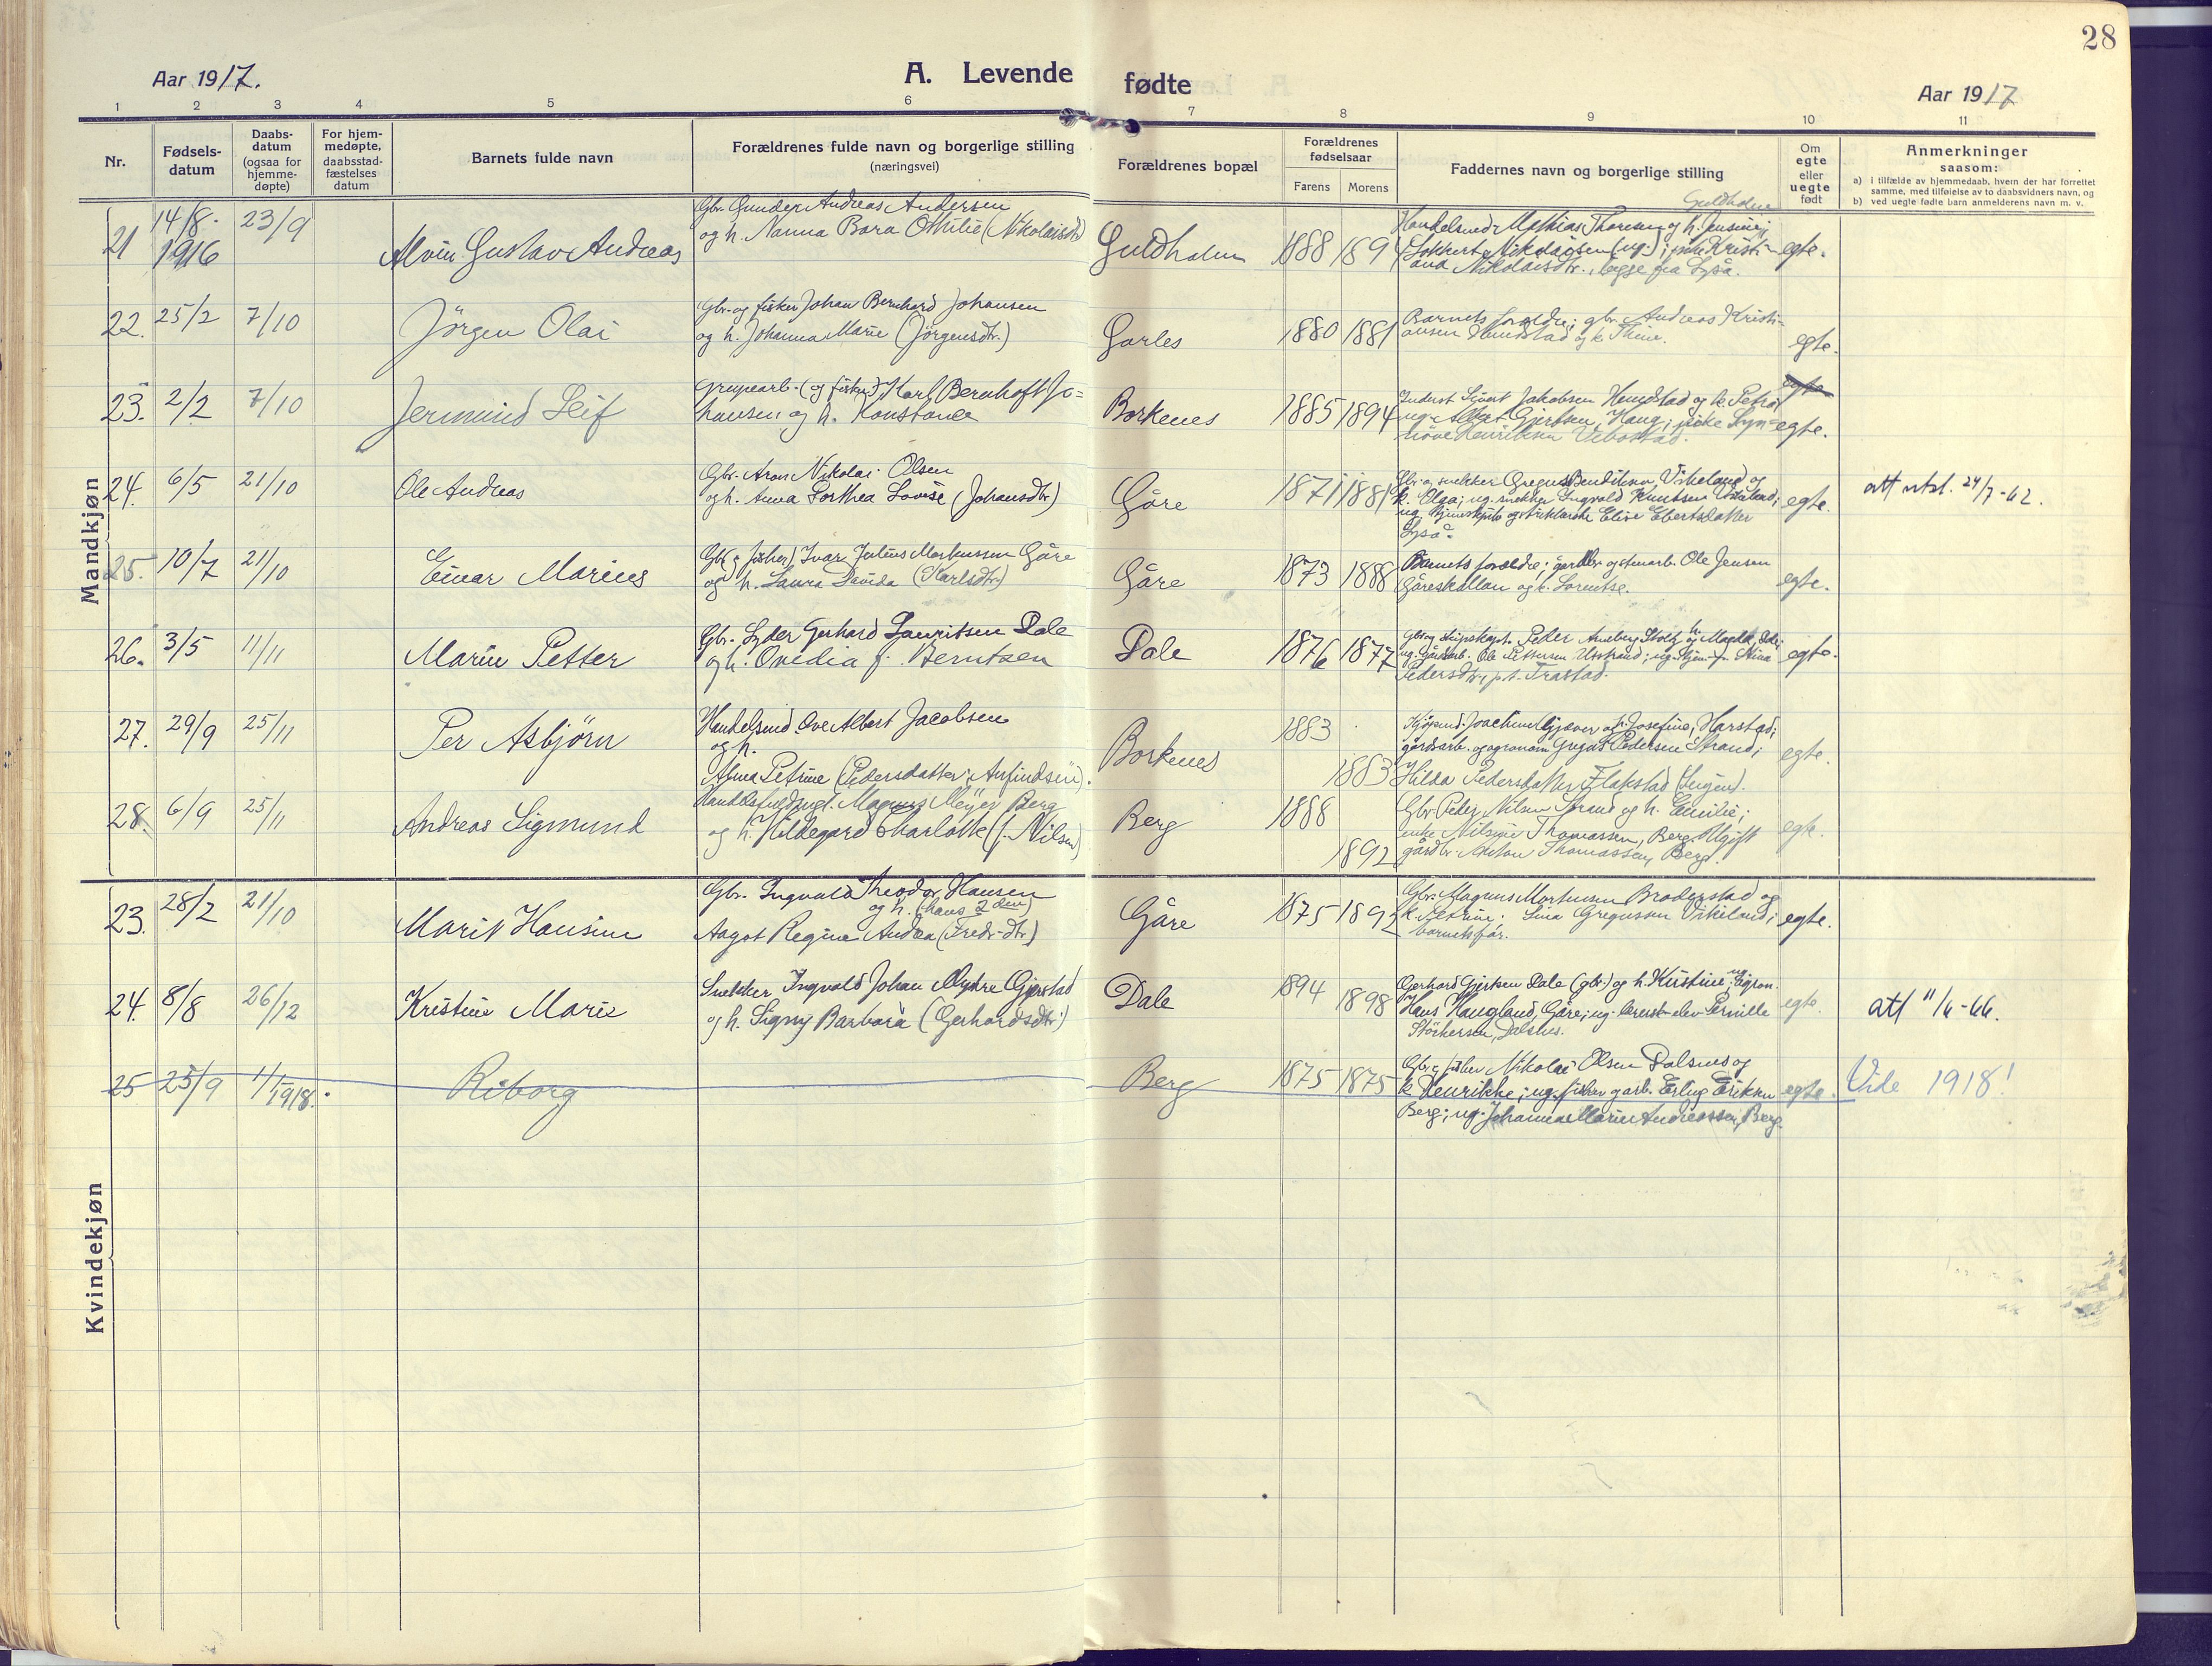 28
Aar 1917.
A. Levende fødte
Aar 1917
1 2 3 4 5 6 7 8 9 10 11
Nr.
Fødsels-
datum
Daabs-
datum
(ogsaa for
hjemme-
døpte)
For hjem-
medøpte,
daabsstad-
fæstelses
datum
Barnets fulde navn
Forældrenes fulde navn og borgerlige stilling
(næringsvei)
Forældrenes bopæl
Forældrenes
fødselsaar
Farens Morens
Faddernes navn og borgerlige stilling
Om
egte
eller
uegte
født
Anmerkninger
saasom:
a) i tilfælde av hjemmedaab, hvem der har forrettet
samme, med tilføielse av to daabsvidners navn, og
b) ved uegte fødte barn anmelderens navn m. v.
Mandkjøn
21 14/8- 1916 23/9
Alvin Gustav Andreas
Gbr. Gunder Andreas Andersen
og h. Nanna Bara Othilie (Nikolaisdtr)
Guldholm
1888
Guldholm
Handelsmed. Mathias Thoresen og h. Jensine;
egte.
22. 25/2 7/10
Jörgen Olai
Gbr. og fisker Johan Bernhard Johansen
og h. Johanna Marie (Jörgensdtr.)
Garles
1880 1881
Barnets forældre; gbr. Andreas Kristi-
ansen Hemdstad og k. Thine.
egte.
23. 2/2 7/10
Jermund Leif
Grupearb. (og fisker) Karl Bernhoft Jo=
hansen og h. Konstance
Borkenes
1885 1894
Inderst Sivert Jakobsen Hemdstad og k. Petra;
egte.
24. 6/5 21/10
Ole Andreas
Gbr. Aron Nikolai Olsen
og h. Anna Dorthea Lovise (Johansdtr)
Gåre
1871 1881
k. Olga; ug. snekker Ingvald Knutsen
Elise Ebertsdatter
egte.
att utst. 24/7-62.
25. 10/7 21/10
Einar Marius
Gbr (og fisker) Ivar Julius Markussen Gåre
og h. Laura Davida (Karlsdtr.)
Gåre
1873 1888
Barnets forældre; gårdbr og stenarb. Ole Jensen
Gåreskallan og k. Lorentse.
egte.
26. 3/5 11/11
Marin Petter
Gbr. Lyder Gerhard Lauritsen Dale
og h. Ovedia f. Berntsen
Dale
1876 1877
Pedersdtr., p.t. Trastad.
egte.
27. 29/9 25/11
Per Asbjörn
Handelsmd. Ove Albert Jacobsen
og h.
Alma Petrine (Pedersdatter; Arfindsen).
Borkenes
1883
1883
Kjøpmd. Joachim Gjæver og fr. Josefine, Harstad;
gårdsarb. og agronom Gregus Pedersen Strand;
Hilda Pedersdatter Flakstad
egte.
28. 6/9 25/11
Andreas Sigmund
Magnus Meyer Berg
og h. Hildegard Charlotte (f. Nilsen)
Berg
1888
1892
Gbr Peder Nilsen Strand og h. Emilie;
enke Nilsine Thomassen, Berg. Ugift
gårdbr. Anton Thomassen, Berg.
egte.
Kvindekjøn
23. 28/2 21/10
Marit Hansine
Gbr. Ingvald Theodor Hansen
og h. (hans 2den)
Aagot Regine Andrea (Fredr-dtr)
Gåre
1875 1892
Gbr. Magnus Mortensen Brøderstad og
k. Petrine; Lina Gregussen Vikeland;
barnets far.
egte.
24. 8/8 26/12
Kristine Marie
Snekker Ingvald Johan Myhre Gjerstad
og h. Signy Barbara (Gerhardsdtr.)
Dale
1894 1898
Gerhard Gjertsen Dale (gbr.) og h. Kristine;
Hans Haugland, Gåre; ug. Pernille
Störkersen, Dalsnes.
egte.
att 11/6-66.
25 25/9 1/1 1918.
Riborg
Berg
1875 1875
Gbr. og fisker Nikolai Olsen Dalsnes og
k. Henrikke; ug. fisker og arb. Erling Eriksen
Berg; ug. Johanna Marie Andreassen, Berg.
egte.
Vide 1918!